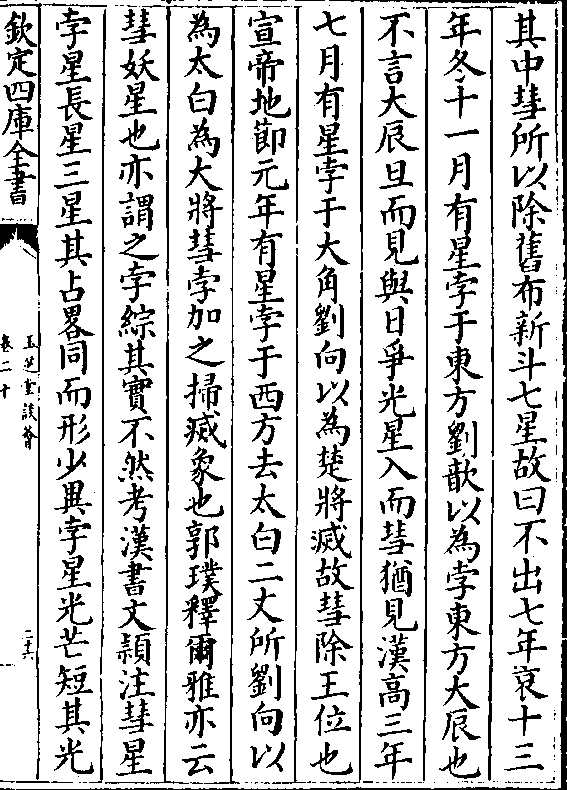 其中彗所以除舊布新斗七星故曰不出七年哀十三
年冬十一月有星孛于東方劉歆以為孛東方大辰也
不言大辰旦而見與日爭光星入而彗猶見漢高三年
七月有星孛于大角劉向以為楚將滅故彗除王位也
宣帝地節元年有星孛于西方去太白二丈所劉向以
為太白為大將彗孛加之掃滅象也郭璞釋爾雅亦云
彗妖星也亦謂之孛綜其實不然考漢書文頴注彗星
孛星長星三星其占畧同而形少異孛星光芒短其光
欽定四庫全書
玉芝堂談薈
卷二十
二六